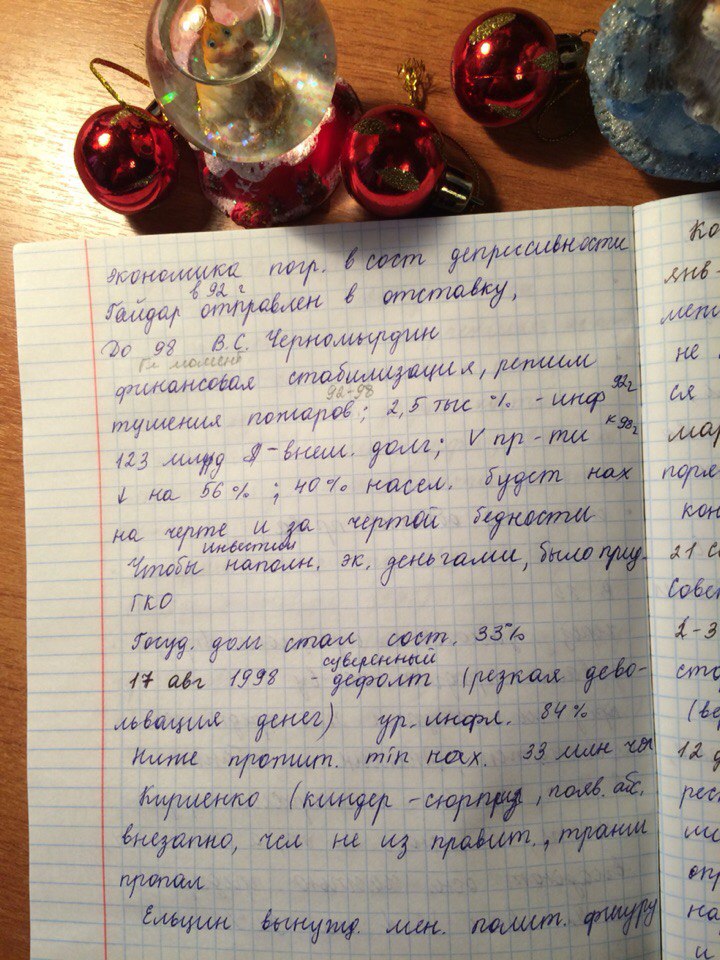 экономика погр. в сост депрессивности
в 92 г
Гайдар отправлен в отставку,
До 98 В.С. Черномырдин
Гл момент
финансовая стабилизация, режим
92-98
тушения пожаров; 2,5 тыс % - инф 92г
123 млрд $ - внеш. долг; V пр-ти к 90г
↓ на 56%; 40% насел. будет нах
на черте и за чертой бедности
инвестиц
Чтобы наполн. эк. деньгами, было прид.
ГКО
Госуд. долг стал сост. 33%
суверенный
17 авг 1998 - дефолт (резкая дево-
львация денег) ур. инфл. 84%
Ниже прожит. min нах. 33 млн чел
Кириенко (киндер-сюрприз, появ. абс.
внезапно, чел не из правит., транш
пропал
Ельцин вынужд. мен. полит. фигуру
Ко
янв-
мент
не
ся
мар
поря
кон
21 с
Совет
2-3
ста
(ве
12 д
рес
мс
опр
на
и